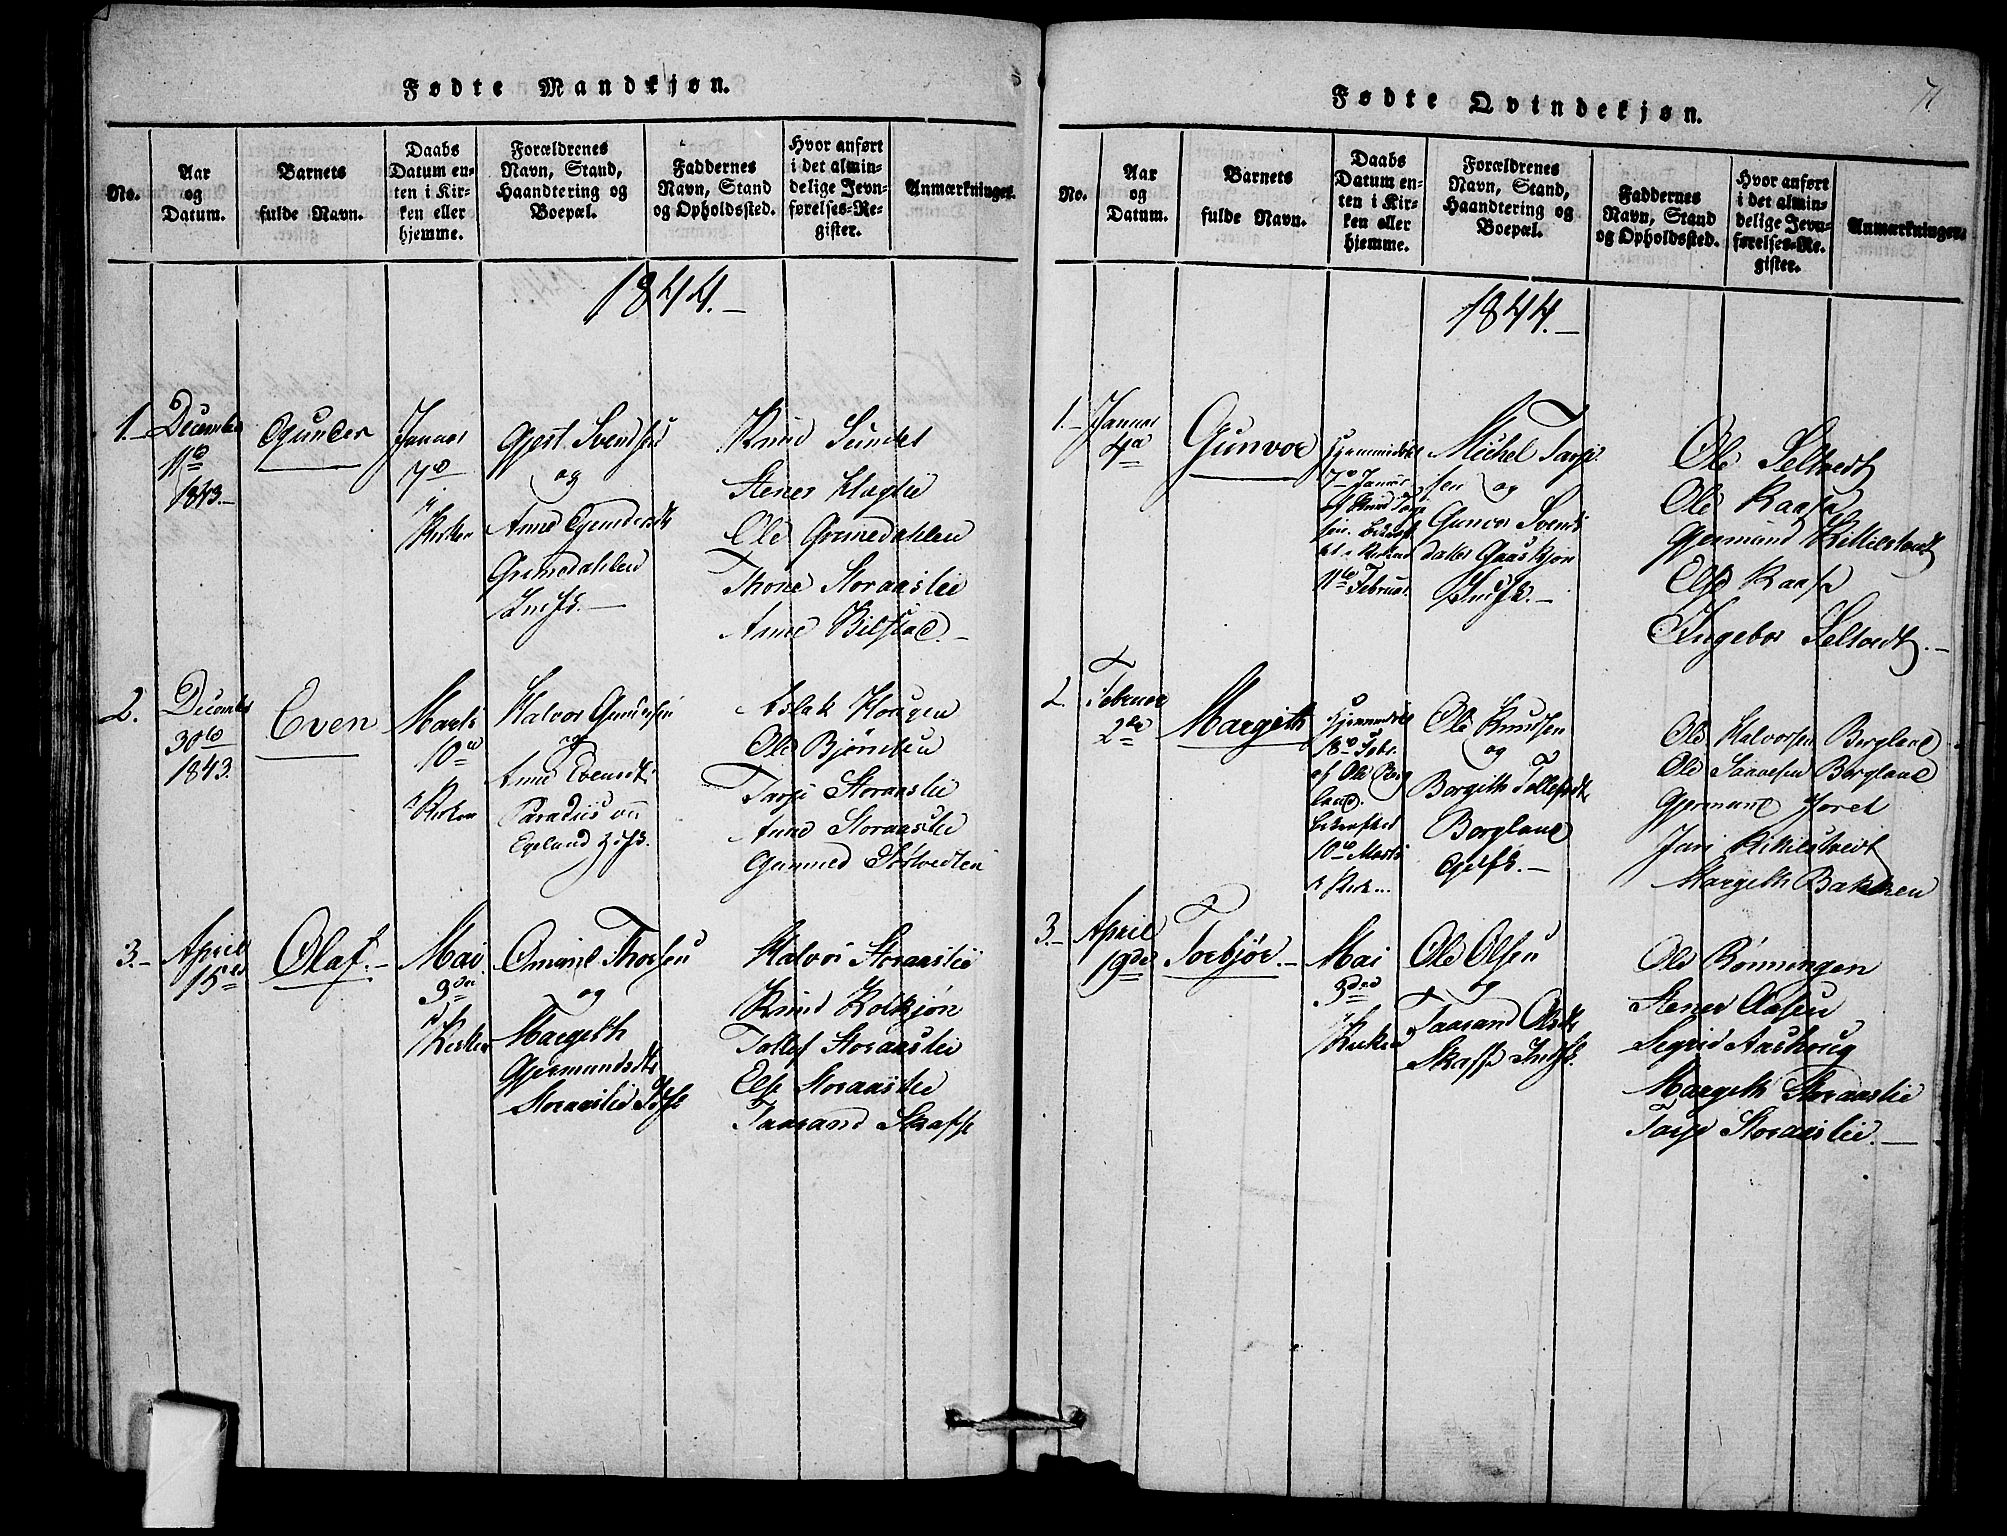 Fødte Mandkjøn.
No.
Aar
og
Datum.
Barnets
fulde Navn.
Daabs
Datum en-
ten i Kir-
ken eller
hjemme.
Forældrenes
Navn, Stand,
Haandtering og
Boepæl.
Faddernes
Navn, Stand
og Opholdssted.
Hvor anført
i det almin-
delige Jevn-
førelses-Re-
gister.
Anmærkninger.
1844.-
1.-
December
11te
1843.-
Gunder
Januar
7de
Kirken
Gjest Svends
og
Anne Evensdtr
Grimedahlen
Indst.-
Knud Sundet
Stener
Ole Grimedahlen
Thone Storaaslie
Anne Bilstad.-
2.
Decemb
30te
1843.
Even
Marts
10de
Kirken
Halvor Gundersen
og
Anne Evensdtr
Paradiis
Egeland
Aslak Hougen
Ole Bjørnebu
Tarje Storaaslie
Anne Storaaslie
Gunnild
3.-
April
15de
Olaf.-
Mai
3die
Kirken
Omund Thorsen
og
Margeth
Gjermundsdtr
Storaaslie
Halvor Storaaslie
Knud Kolkjøn
Tollef Storaaslie
Else Storaaslie
Taarand Skafse
Fødte Qvindekjøn.
71
No.
Aar
og
Datum.
Barnets
fulde Navn.
Daabs
Datum en-
ten i Kir-
ken eller
hjemme.
Forældrenes
Navn, Stand,
Haandtering og
Boepæl.
Faddernes
Navn, Stand
og Opholdssted.
Hvor anført
i det almin-
delige Jevn-
førelses-Re-
gister.
Anmærkninger.
1844.-
1.-
Januar
4de
Gunvor
Hjemmedøbt
7de Januar
af Knud Tarje
sen
i Kirken
11te Februar
Michel Tarje-
sen og
Gunvor Svends
datter Gaaskjøn
Indst.-
Ole Seltvedt
Ole Raase
Gjermund Kittilstvedt
Else Raase
Ingebor Seltvedt.-
2.
Februar
2den
Margith
Hjemmedøbt
18de Febr.
af Ole Berg
land.
bekræftet
10de Marts
i Kirk...
Ole Knudsen
og
Borgith Tollefsdtr
Bergland
Ole Halvorsen Bergland
Ole Saavesen Bergland
Gjermund
Kittilstvedt
Margith Bakken
3.-
April
19de
Torbjør.-
Mai
3die
Kirken
Ole Olsen
og
Taarand Olsdtr
Skafse Indst.
Ole Rønningen
Stener Aasen
Sigrid
Margith Storaaslie
Tarje Storaaslie.-